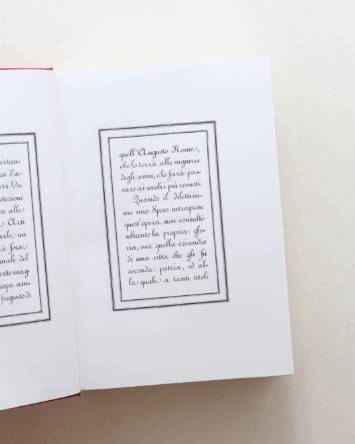 ertau-
a d'a-
tezione
a alle
Arti
arle in
rà forse
uali del
erto mag-
ropa am-
fregiato di
quell'Augusto Nome,
che lo torrà alle ingiurie
degli anni, e lo farà pas-
sare ai secoli i più remoti.
Quando il dilettissi-
mo mio Sposo intraprese
quest'opera, non consultò
soltanto la propria glo-
ria, ma quella eziandio
di una città che gli fu
seconda patria, ed al-
la quale a tanti titoli